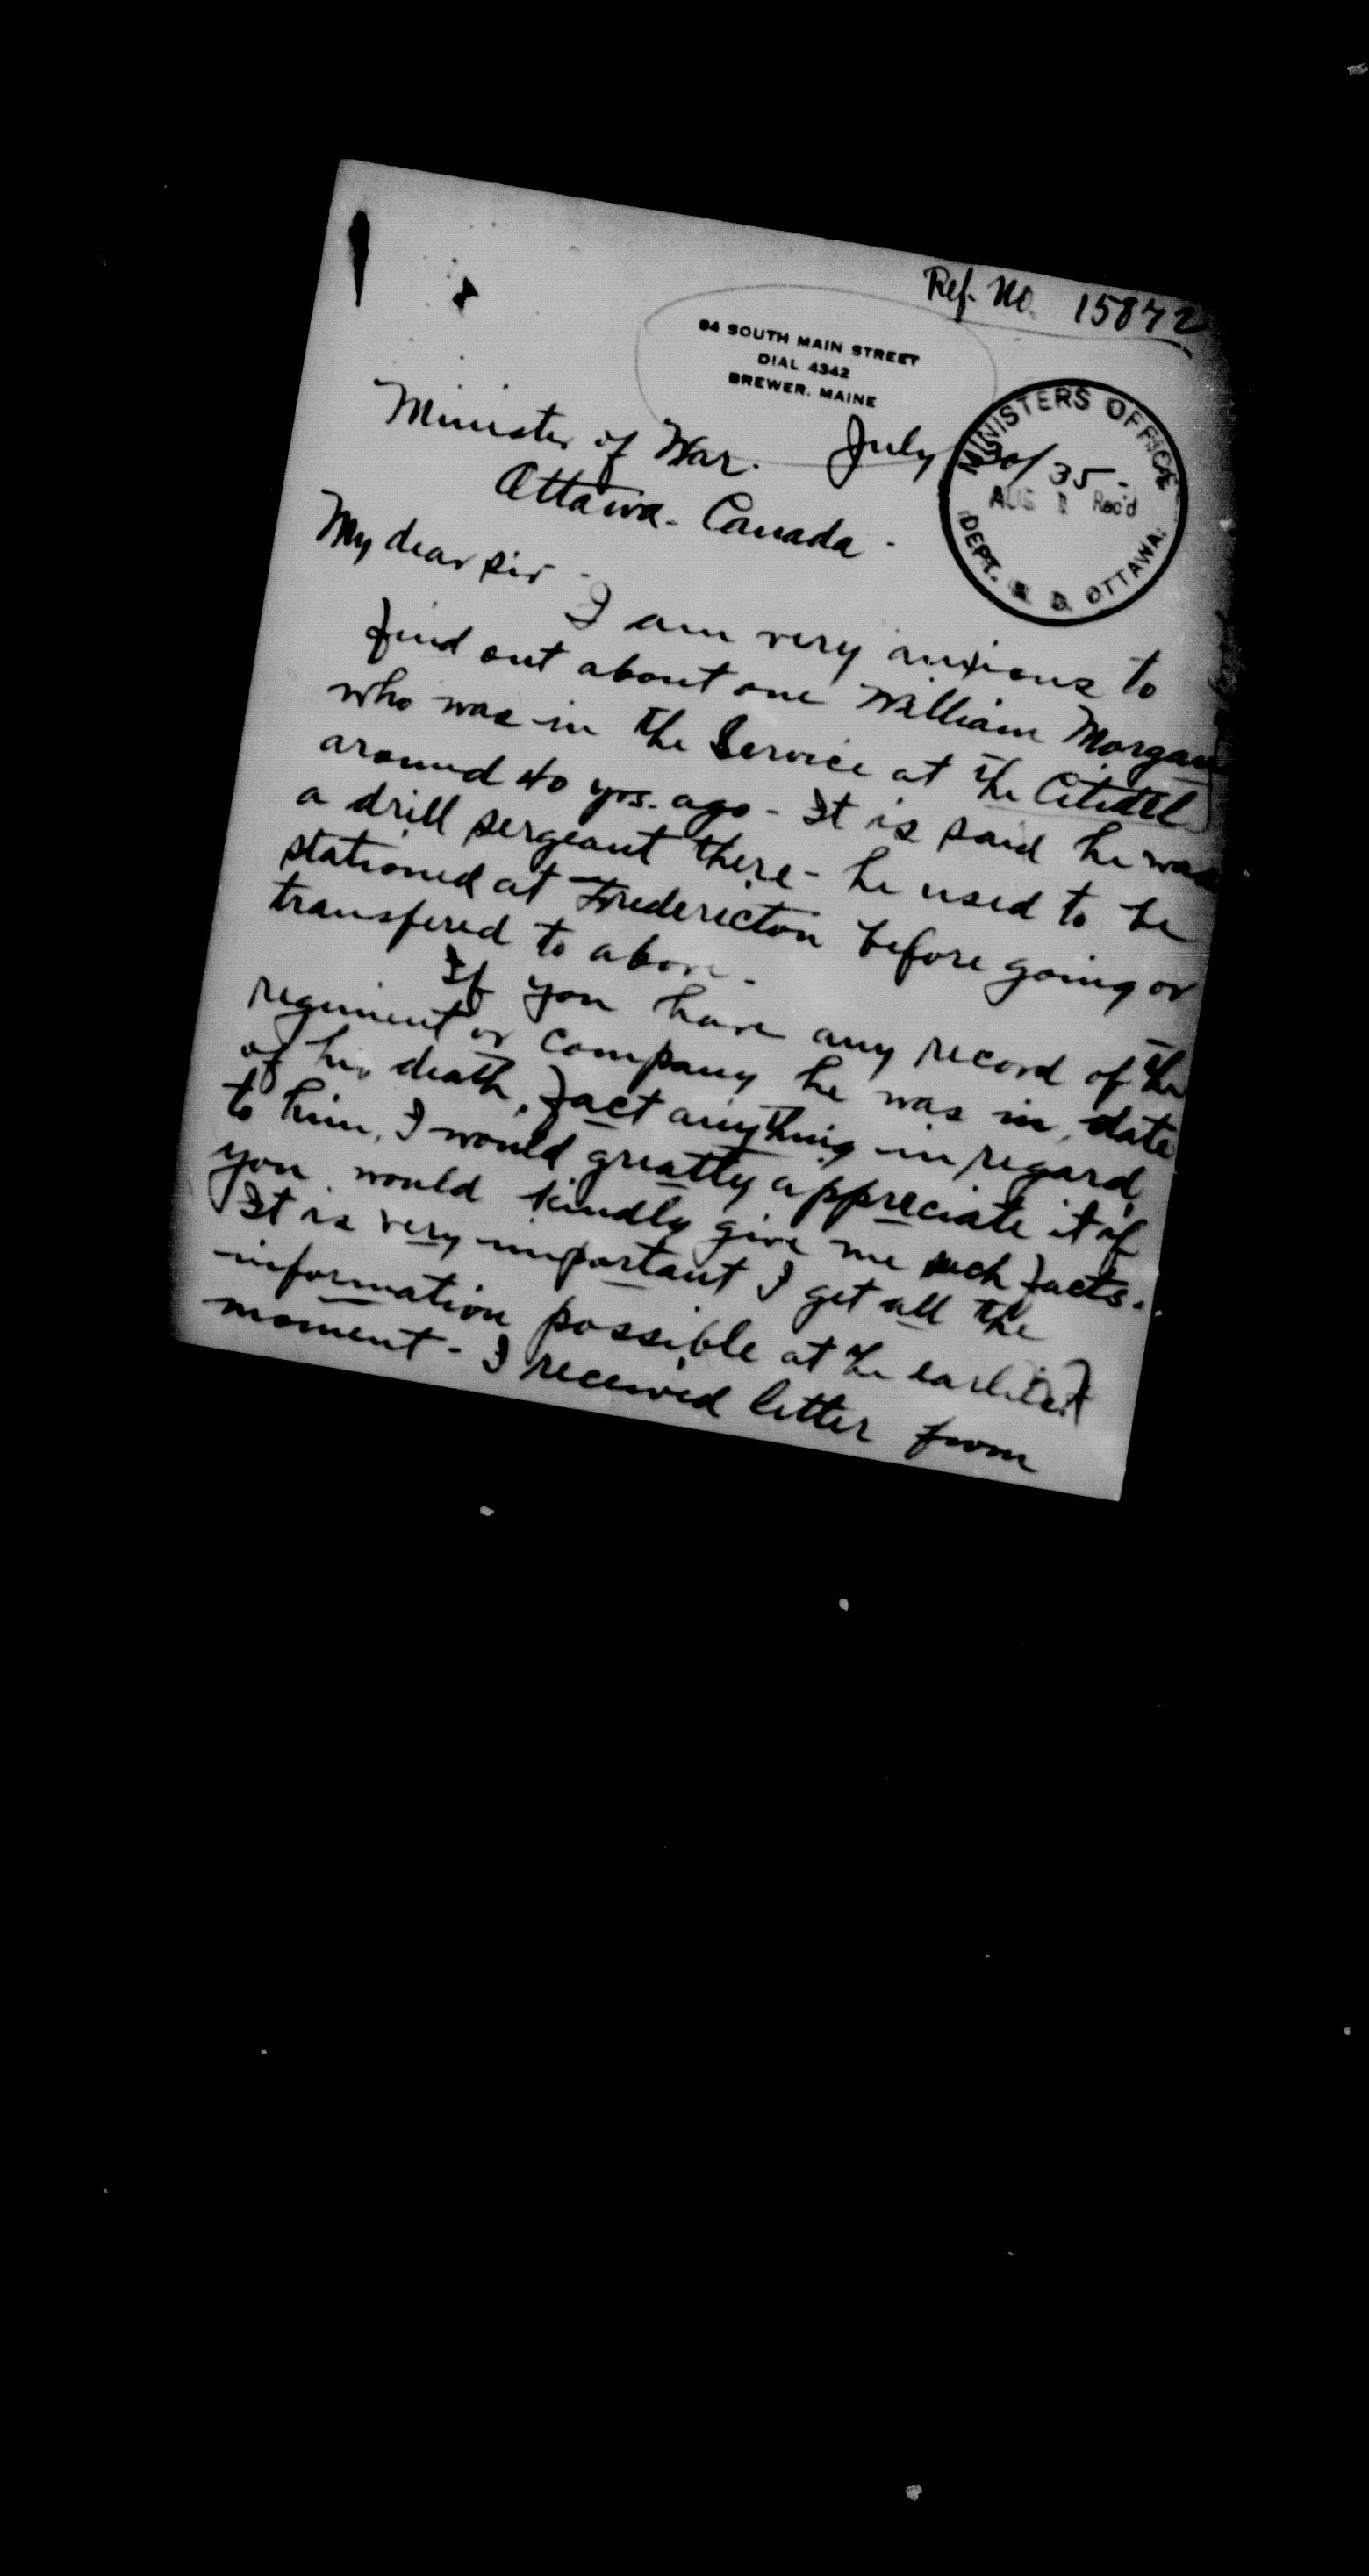 Ref. No. 15872
84 SOUTH MAIN STREET
DIAL 4342
BREWER, MAINE
MINISTERS OFFICE
AUG 1 Rec'd
DEPT. N. D. OTTAWA.
July 30/35-
Minister of War.
Ottawa- Canada-
My dear Sir-
I am very anxious to
find out about one William Morgan
who was in the Service at the Citidel
around 40 yrs. ago- It is said he was
a drill sergeant there- he used to be
stationed at Fredericton before going or
transfered to above-
If you have any record of the
regiment or company he was in, date
of his death, fact anything in regard
to him, I would greatly appreciate it if
you would kindly give me such facts.
It is very important I get all the
information possible at the earliest
moment- I received letter from